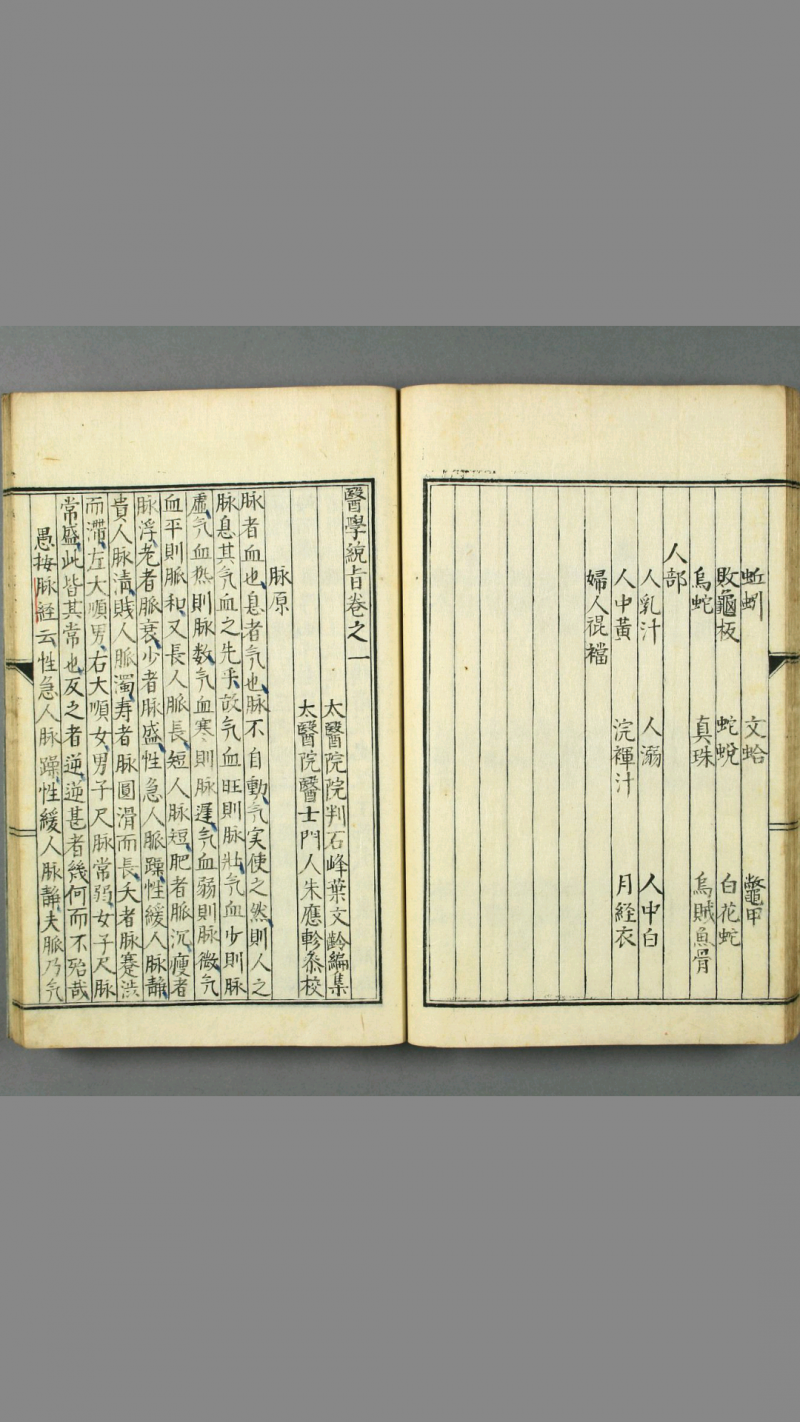 蚯蚓 文蛤 鼈甲
敗龜板 蛇蛻 白花蛇
烏蛇 真珠 烏賊魚骨
人部
人乳汁 人溺 人中白
人中黃 浣褌汁 月経衣
婦人裩襠
醫學統旨卷之一
太醫院院判石峰葉文齡編集
太醫院醫士門人朱應軫叅校
脉原
脉者血也息者气也脉不自動气实使之然則人之
脉息其气血之先乎故气血旺則脉壯气血少則脉
虛气血热則脉数气血寒則脉遲气血弱則脉微气
血平則脈和又長人脈長短人脉短肥者脈沉瘦者
脉浮老者脈衰少者脉盛性急人脈躁性緩人脉静
貴人脉清賤人脈濁寿者脉圓滑而長夭者脉蹇浤
而滯左大順男右大順女男子尺脉常弱女子尺脉
常盛此皆其常也反之者逆逆甚者幾何而不殆哉
愚按脉経云性急人脉躁性緩人脉静夫脈乃气